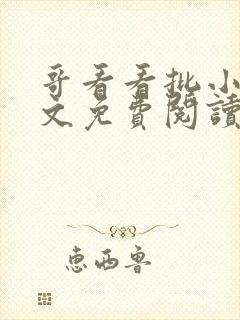 哥看看批小
文免費閱讀
惠西魯